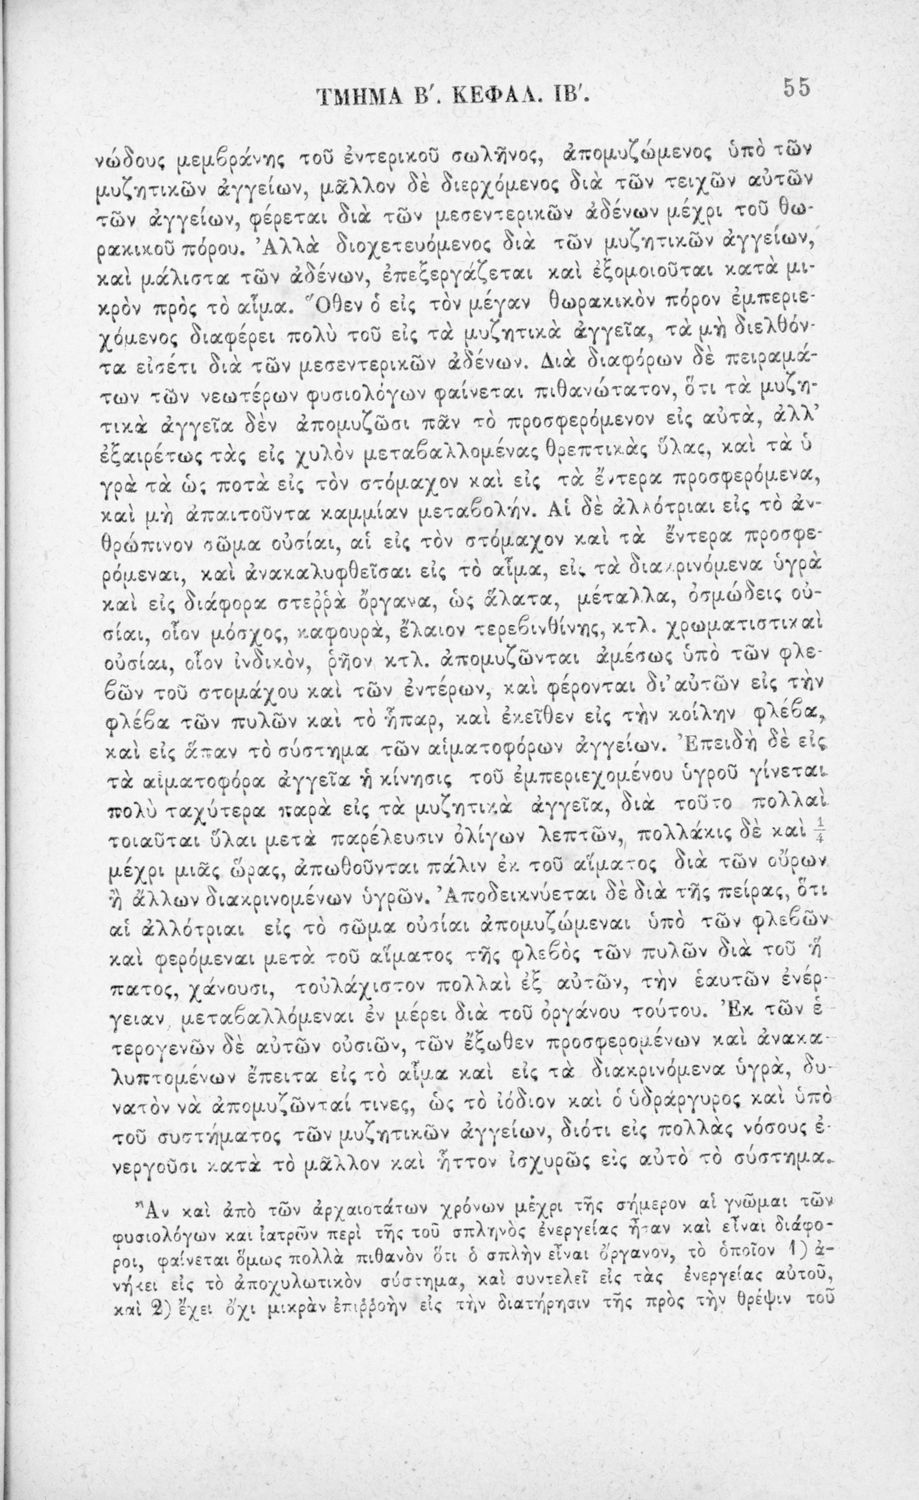 ΤΜΗΜΑ Β΄. ΚΕΦΑΛ. ΙΒ΄. 55
νώδους μεμβράνης τοῦ ἐντερικοῦ σωλῆνος, ἀπομυζώμενος ὑπὸ τῶν
μυζητικῶν ἀγγείων, μᾶλλον δὲ διερχόμενος διὰ τῶν τειχῶν αὐτῶν
τῶν ἀγγείων, φέρεται διὰ τῶν μεσεντερικῶν ἀδένων μέχρι τοῦ θω-
ρακικοῦ πόρου. Ἀλλὰ διοχετευόμενος διὰ τῶν μυζητικῶν ἀγγείων,
καὶ μάλιστα τῶν ἀδένων, ἐπεξεργάζεται καὶ ἐξομοιοῦται κατὰ μι-
κρὸν πρὸς τὸ αἷμα. Ὅθεν ὁ εἰς τὸν μέγαν θωρακικὸν πόρον ἐμπεριε-
χόμενος διαφέρει πολὺ τοῦ εἰς τὰ μυζητικὰ ἀγγεῖα, τὰ μὴ διελθόν-
τα εἰσέτι διὰ τῶν μεσεντερικῶν ἀδένων. Διὰ διαφόρων δὲ πειραμά-
των τῶν νεωτέρων φυσιολόγων φαίνεται πιθανώτατον, ὅτι τὰ μυζη-
τικὰ ἀγγεῖα δὲν ἀπομυζῶσι πᾶν τὸ προσφερόμενον εἰς αὐτὰ, ἀλλ'
ἐξαιρέτως τὰς εἰς χυλὸν μεταβαλλομένας θρεπτικὰς ὕλας, καὶ τὰ ὑ
γρὰ τὰ ὡς ποτὰ εἰς τὸν στόμαχον καὶ εἰς τὰ ἔντερα προσφερόμενα,
καὶ μὴ ἀπαιτοῦντα καμμίαν μεταβολήν. Αἱ δὲ ἀλλότριαι εἰς τὸ ἀν-
θρώπινον σῶμα οὐσίαι, αἱ εἰς τὸν στόμαχον καὶ τὰ ἔντερα προσφε-
ρόμεναι, καὶ ἀνακαλυφθεῖσαι εἰς τὸ αἷμα, εἰς τὰ διακρινόμενα ὑγρὰ
καὶ εἰς διάφορα στεῤῥὰ ὄργανα, ὡς ἅλατα, μέταλλα, ὀσμώδεις οὐ-
σίαι, οἷον μόσχος, καφουρὰ, ἔλαιον τερεβινθίνης, κτλ. χρωματιστικαὶ
οὐσίαι, οἷον ἰνδικὸν, ῥῆον κτλ. ἀπομυζῶνται ἀμέσως ὑπὸ τῶν φλε-
βῶν τοῦ στομάχου καὶ τῶν ἐντέρων, καὶ φέρονται δι'αὐτῶν εἰς τὴν
φλέβα τῶν πυλῶν καὶ τὸ ἧπαρ, καὶ ἐκεῖθεν εἰς τὴν κοίλην φλέβα,
καὶ εἰς ἅπαν τὸ σύστημα τῶν αἱματοφόρων ἀγγείων. Ἐπειδὴ δὲ εἰς
τὰ αἱματοφόρα ἀγγεῖα ἡ κίνησις τοῦ ἐμπεριεχομένου ὑγροῦ γίνεται
πολὺ ταχύτερα παρὰ εἰς τὰ μυζητικὰ ἀγγεῖα, διὰ τοῦτο πολλαὶ
τοιαῦται ὕλαι μετὰ παρέλευσιν ὀλίγων λεπτῶν, πολλάκις δὲ καὶ 1/4
μέχρι μιᾶς ὥρας, ἀπωθοῦνται πάλιν ἐκ τοῦ αἵματος διὰ τῶν οὔρων
ἢ ἄλλων διακρινομένων ὑγρῶν. Ἀποδεικνύεται δὲ διὰ τῆς πείρας, ὅτι
αἱ ἀλλότριαι εἰς τὸ σῶμα οὐσίαι ἀπομυζώμεναι ὑπὸ τῶν φλεβῶν
καὶ φερόμεναι μετὰ τοῦ αἵματος τῆς φλεβὸς τῶν πυλῶν διὰ τοῦ ἥ
πατος, χάνουσι, τοὐλάχιστον πολλαὶ ἐξ αὐτῶν, τὴν ἑαυτῶν ἐνέρ-
γειαν μεταβαλλόμεναι ἐν μέρει διὰ τοῦ ὀργάνου τούτου. Ἐκ τῶν ἑ
τερογενῶν δὲ αὐτῶν οὐσιῶν, τῶν ἔξωθεν προσφερομένων καὶ ἀνακα-
λυπτομένων ἔπειτα εἰς τὸ αἷμα καὶ εἰς τὰ διακρινόμενα ὑγρὰ, δυ-
νατὸν νὰ ἀπομυζῶνταί τινες, ὡς τὸ ἰόδιον καὶ ὁ ὑδράργυρος καὶ ὑπὸ
τοῦ συστήματος τῶν μυζητικῶν ἀγγείων, διότι εἰς πολλὰς νόσους ἐ-
νεργοῦσι κατὰ τὸ μᾶλλον καὶ ἧττον ἰσχυρῶς εἰς αὐτὸ τὸ σύστημα.
Ἂν καὶ ἀπὸ τῶν ἀρχαιοτάτων χρόνων μέχρι τῆς σήμερον αἱ γνῶμαι τῶν
φυσιολόγων και ἰατρῶν περὶ τῆς τοῦ σπληνὸς ἐνεργείας ἦταν καὶ εἶναι διάφο-
ροι, φαίνεται ὅμως πολλὰ πιθανὸν ὅτι ὁ σπλὴν εἶναι ὄργανον, τὸ ὁποῖον 1) ἀ-
νήκει εἰς τὸ ἀποχυλωτικὸν σύστημα, καὶ συντελεῖ εἰς τὰς ἐνεργείας αὐτοῦ,
καὶ 2) ἔχει ὄχι μικρὰν ἐπιῤῥοὴν εἰς τὴν διατήρησιν τῆς πρὸς τὴν θρέψιν τοῦ